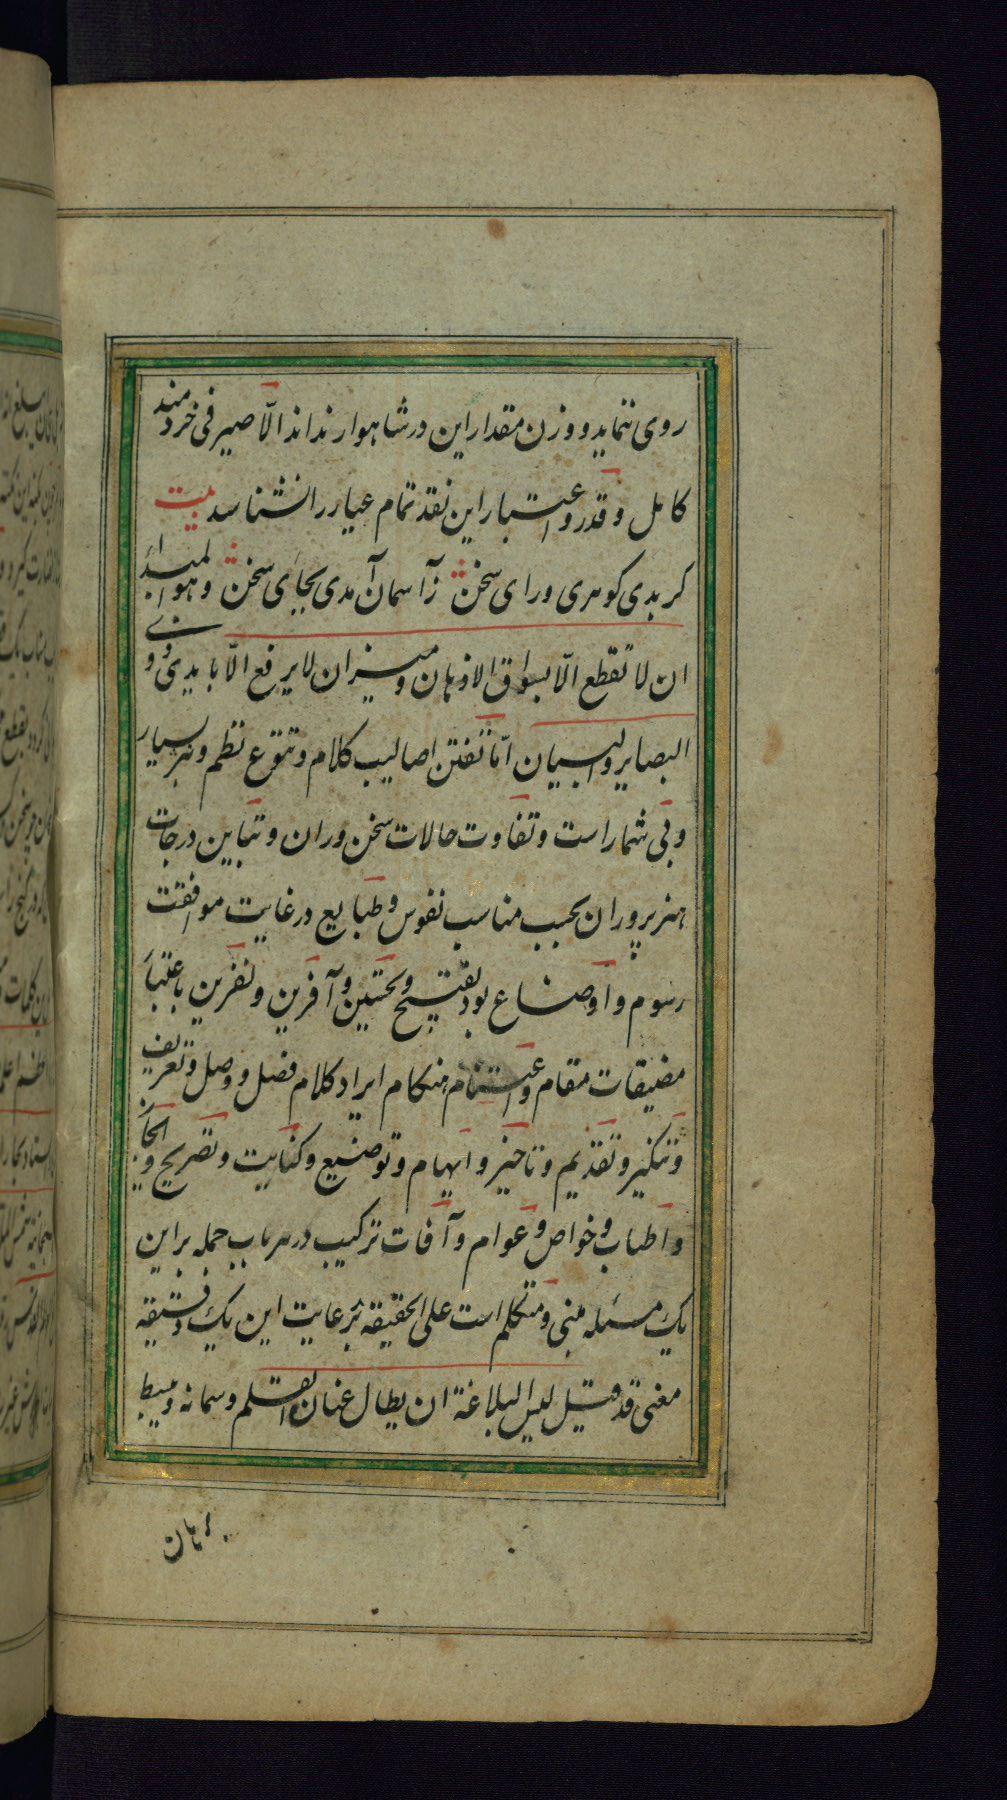 روی ننماید و وزن مقدار این در شاهوار نداند الّا صیرفی خردمند
کامل و قدر و اعتبار این نقد تمام عیار را نشناسد بیت
کر بدی کوهری ورای سخن زآسمان آمدی بجای سخن وهو المیدان
ان لا تقطع الّا بسوابق الاذهان و میزان لا یرفع الّا بایدی
البصایر والبیان امّا تفنّن اصالیب کلام و تنوّع نظم و نثر بسیار
و بی شمار است و تفاوت حالات سخن وران و تباین درجات
هنرپروران بحسب مناسب نفوس و طبایع در غایت موافقت
رسوم و اوضاع بود تقبیح و تحسین و آفرین و نفرین باعتبار
مضیقات مقام و اغتنام هنکام ایراد کلام فصل و وصل و تعریف
و تنکیر و تقدیم و تاخیر و ایهام و توضیع و کنایت و تصریح و ایجاز
و اطناب و خواص و عوام و آفات ترکیب در هر باب جمله بر این
یک مسئله مبنی و متکلم است علی الحقیقه بر رعایت این یک دقیقه
معنی قد قیل لیس البلاغة ان یطال عنان القلم و سمانه و یبسط
رهان